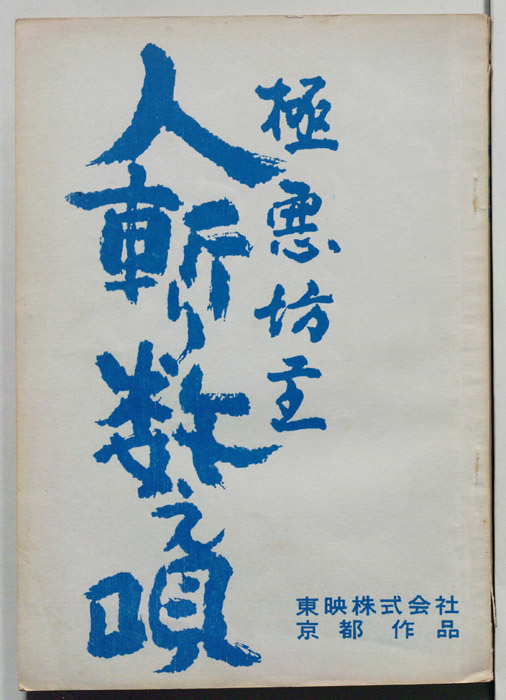 極悪坊主
人斬り数え唄
東映株式会社
京都作品